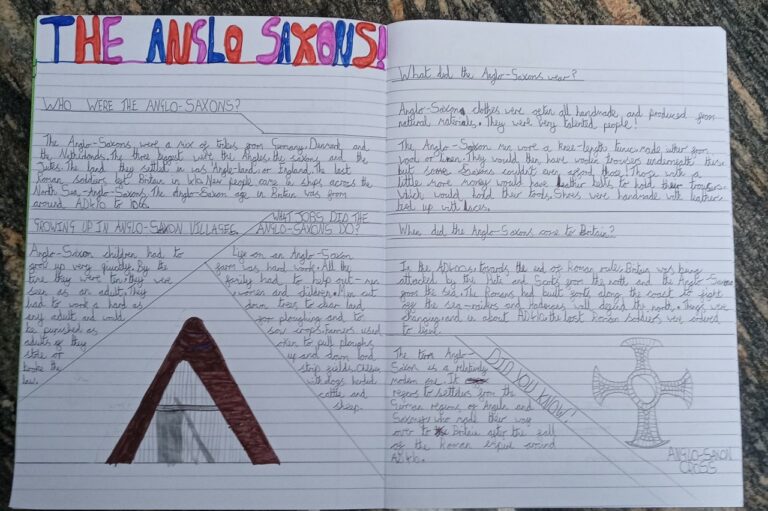 THE ANGLO SAXONS!
WHO WERE THE ANGLO-SAXONS?
The Anglo-Saxons were a mix of tribes from Germany, Denmark and
the Netherlands. The three biggest were the Angles, the Saxons and the
Jutes. The land they settled in was Angle-land, or England. The last
Roman soldiers left Britain in 410. New people came in ships across the
North Sea-Anglo-Saxons. The Anglo-Saxon age in Britain was from
around AD410 to 1066.
GROWING UP IN ANGLO-SAXON VILLAGES
Anglo-Saxon children had to
grow up very quickly. By the
time they were ten, they were
seen as an adult. They
had to work as hard as
any adult and would
be punished as
adults if they
stole or
broke the
law.
WHAT JOBS DID THE
ANGLO-SAXONS DO?
Life on an Anglo-Saxon
farm was hard work. All the
family had to help out - men
women and children. Men cut
down trees to clear land
for ploughing and to
sow crops. Farmers used
oxen to pull ploughs
up and down long
strip fields. Children
with dogs herded
cattle and
sheep.
What did the Anglo-Saxons wear?
Anglo-Saxons clothes were often all handmade and produced from
natural materials. They were very talented people!
The Anglo-Saxon men wore a knee-length tunic made either from
wool or linen. They would then have woolen trousers underneath these
but some Saxons couldn't even afford those! Those with a
little more money would have leather belts to hold their trousers
which would hold their tools. Shoes were handmade with leather
tied up with laces.
When did the Anglo-Saxons come to Britain?
In the AD400s, towards the end of Roman rule, Britain was being
attacked by the Picts and Scots from the north and the Anglo-Saxons
from the sea. The Romans had built forts along the coast to fight
off the sea-raiders and Hadrian's Wall defend the north. Things were
changing and in about AD410 the last Roman soldiers were ordered
to leave.
The term Anglo-
Saxon is a relatively
modern one. It
refers to settlers from the
German regions of Angeln and
Saxony, who made their way
over to Britain after the fall
of the Roman empire around
AD410.
DID YOU KNOW?
ANGLO-SAXON
CROSS